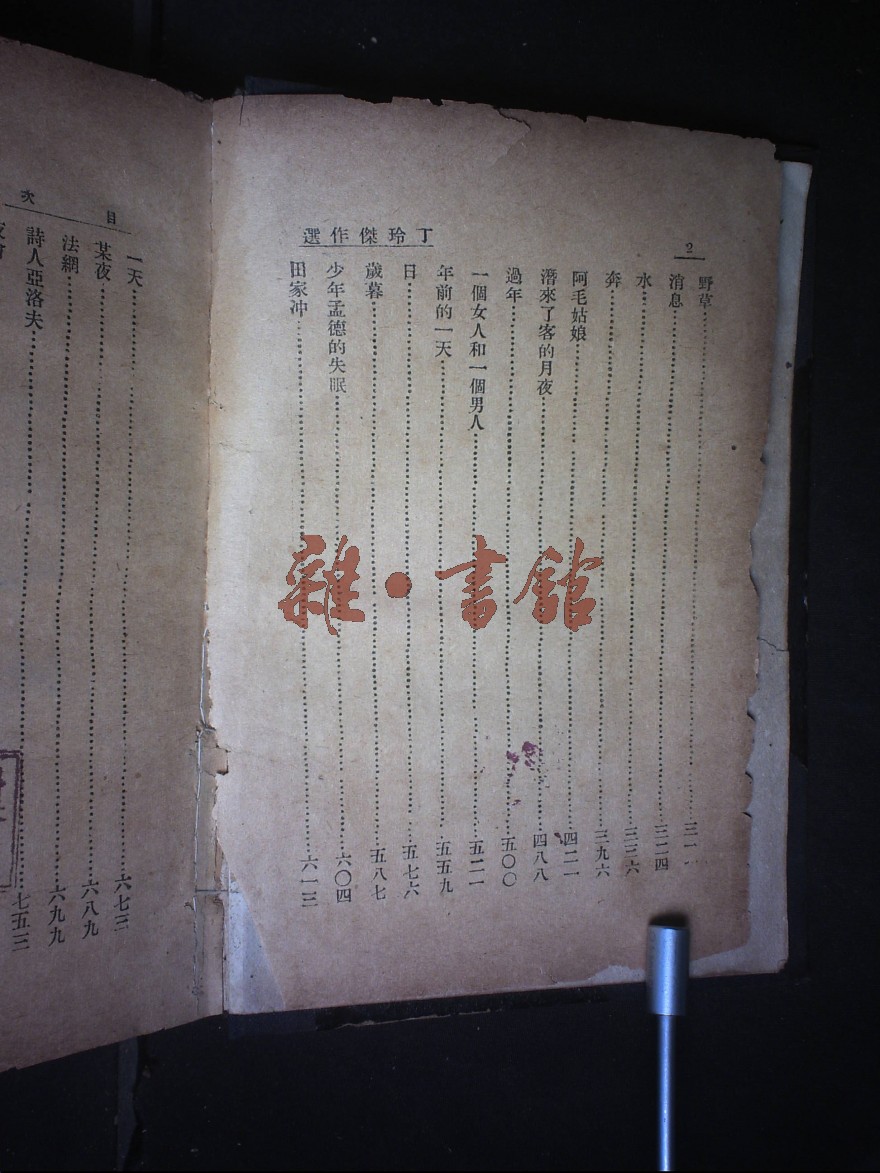 丁玲傑作選
2
野草……三一一
消息……三二四
水……三三六
奔……三九六
阿毛姑娘……四二一
潛來了客的月夜……四八八
過年……五〇〇
一個女人和一個男人……五二一
年前的一天……五五九
日……五七六
歲暮……五八七
少年孟德的失眠……六〇四
田家冲……六一三
目次
一天……六七三
某夜……六八九
法網……六九九
詩人亞洛夫……七五三
雜·書館